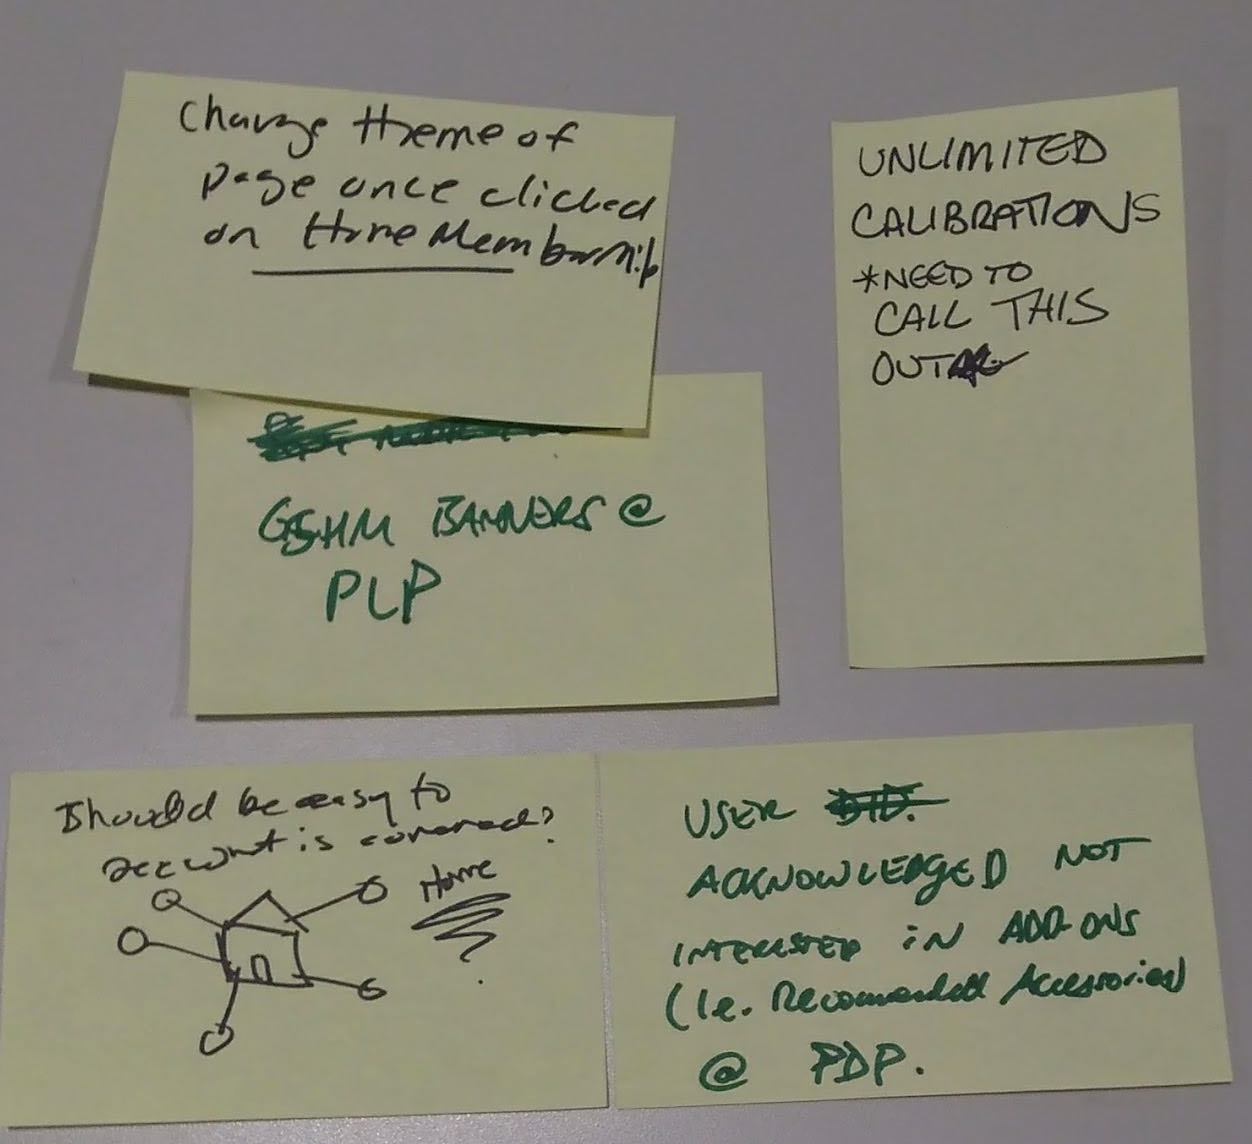 Change theme of
page once clicked
on Home Membership
UNLIMITED
CALIBRATIONS
*NEED TO
CALL THIS
OUT
GSHM BANNERS @
PLP
Should be easy to
account is covered?
Home
USER
ACKNOWLEDGED NOT
INTERESTED IN ADD-ONS
(Ie. Recommended Accessories)
@ PDP.